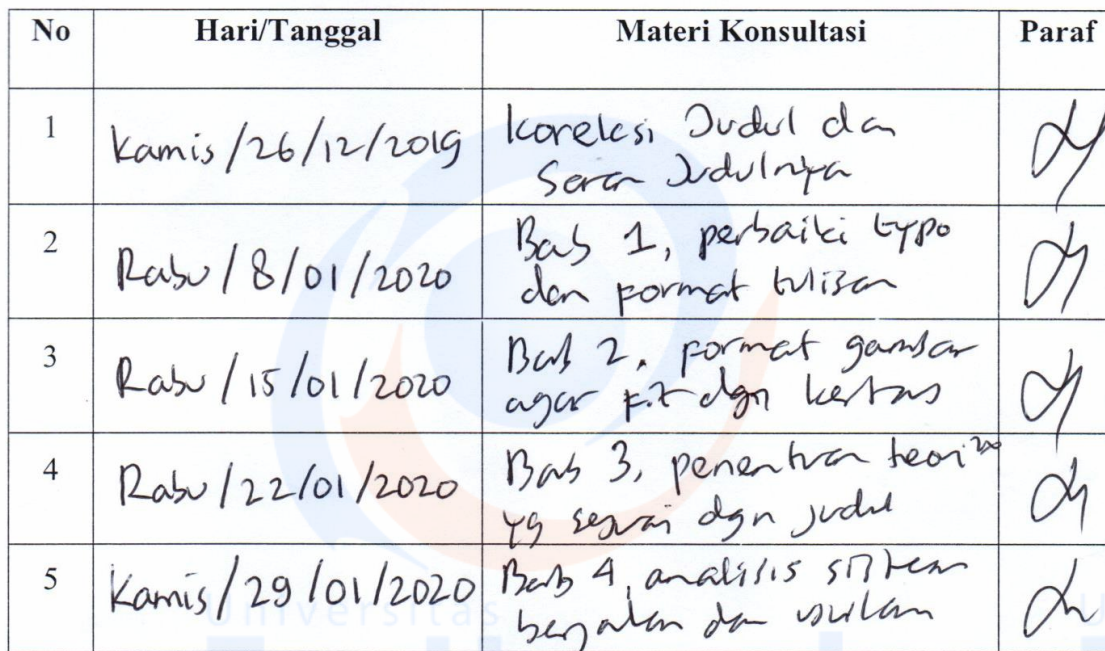 No Hari/Tanggal Materi Konsultasi Paraf
1 Kamis/26/12/2019 koreksi Judul dan
Saran Judulnya
2 Rabu/8/01/2020 Bab 1, perbaiki typo
dan format tulisan
3 Rabu/15/01/2020 Bab 2, format gambar
agar fit dgn kertas
4 Rabu/22/01/2020 Bab 3, penentuan teori
yg sesuai dgn judul
5 Kamis/29/01/2020 Bab 4, analisis sistem
berjalan dan usulan
Universitas